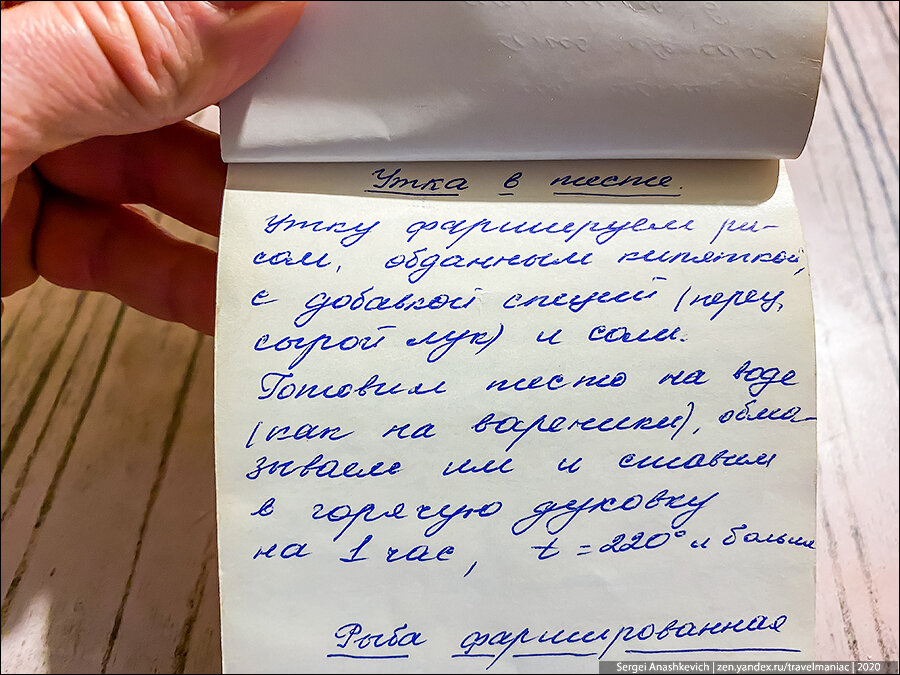 Утка в тесте.
Утку фаршируем ри-
сом, обданным кипятком,
с добавкой специй (перец,
сырой лук) и соли.
Готовим тесто на воде
(как на вареники), обма-
зываем им и ставим
в горячую духовку
на 1 час, t = 220° и больше
Рыба фаршированная
Sergei Anashkevich | zen.yandex.ru/travelmaniac | 2020